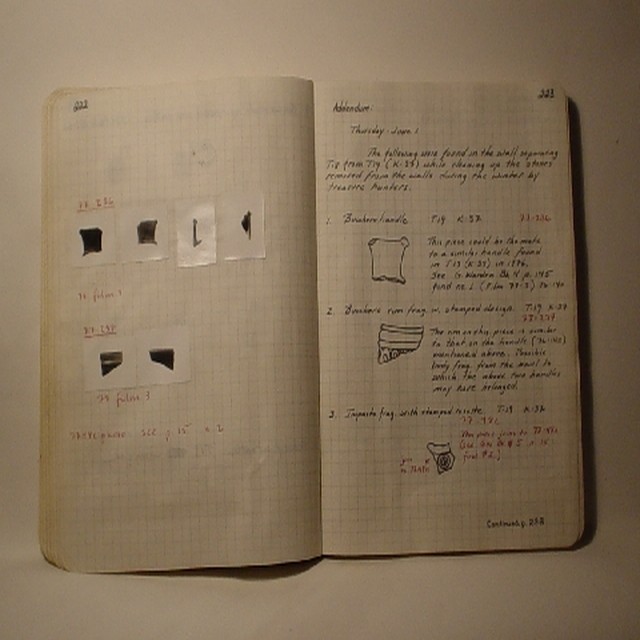 222
77-236
79 film 1
79 film 3
see p. 15
223
Addendum:
Thursday, June 1
The following were found in the wall separating
T.18 from T.19 (K-37) while cleaning up the stones
removed from the walls during the winter by
treasure hunters.
1. Bucchero handle T.19 K-37
This piece could be the mate
to a similar handle found
in T.19 (K-37) in 1976.
See G. Warden Bk. II p. 145
find no. 1 (Film 77-3)
2. Bucchero rim frag. w. stamped design. T.19 K-37
77-237
The rim on this piece is similar
to that on the handle (76-140)
mentioned above. Possible
body frag. from the bowl to
which the above two handles
may have belonged.
3. Impasto frag. with stamped rosette T.19 K-37
This piece joins to
Continued p. 233